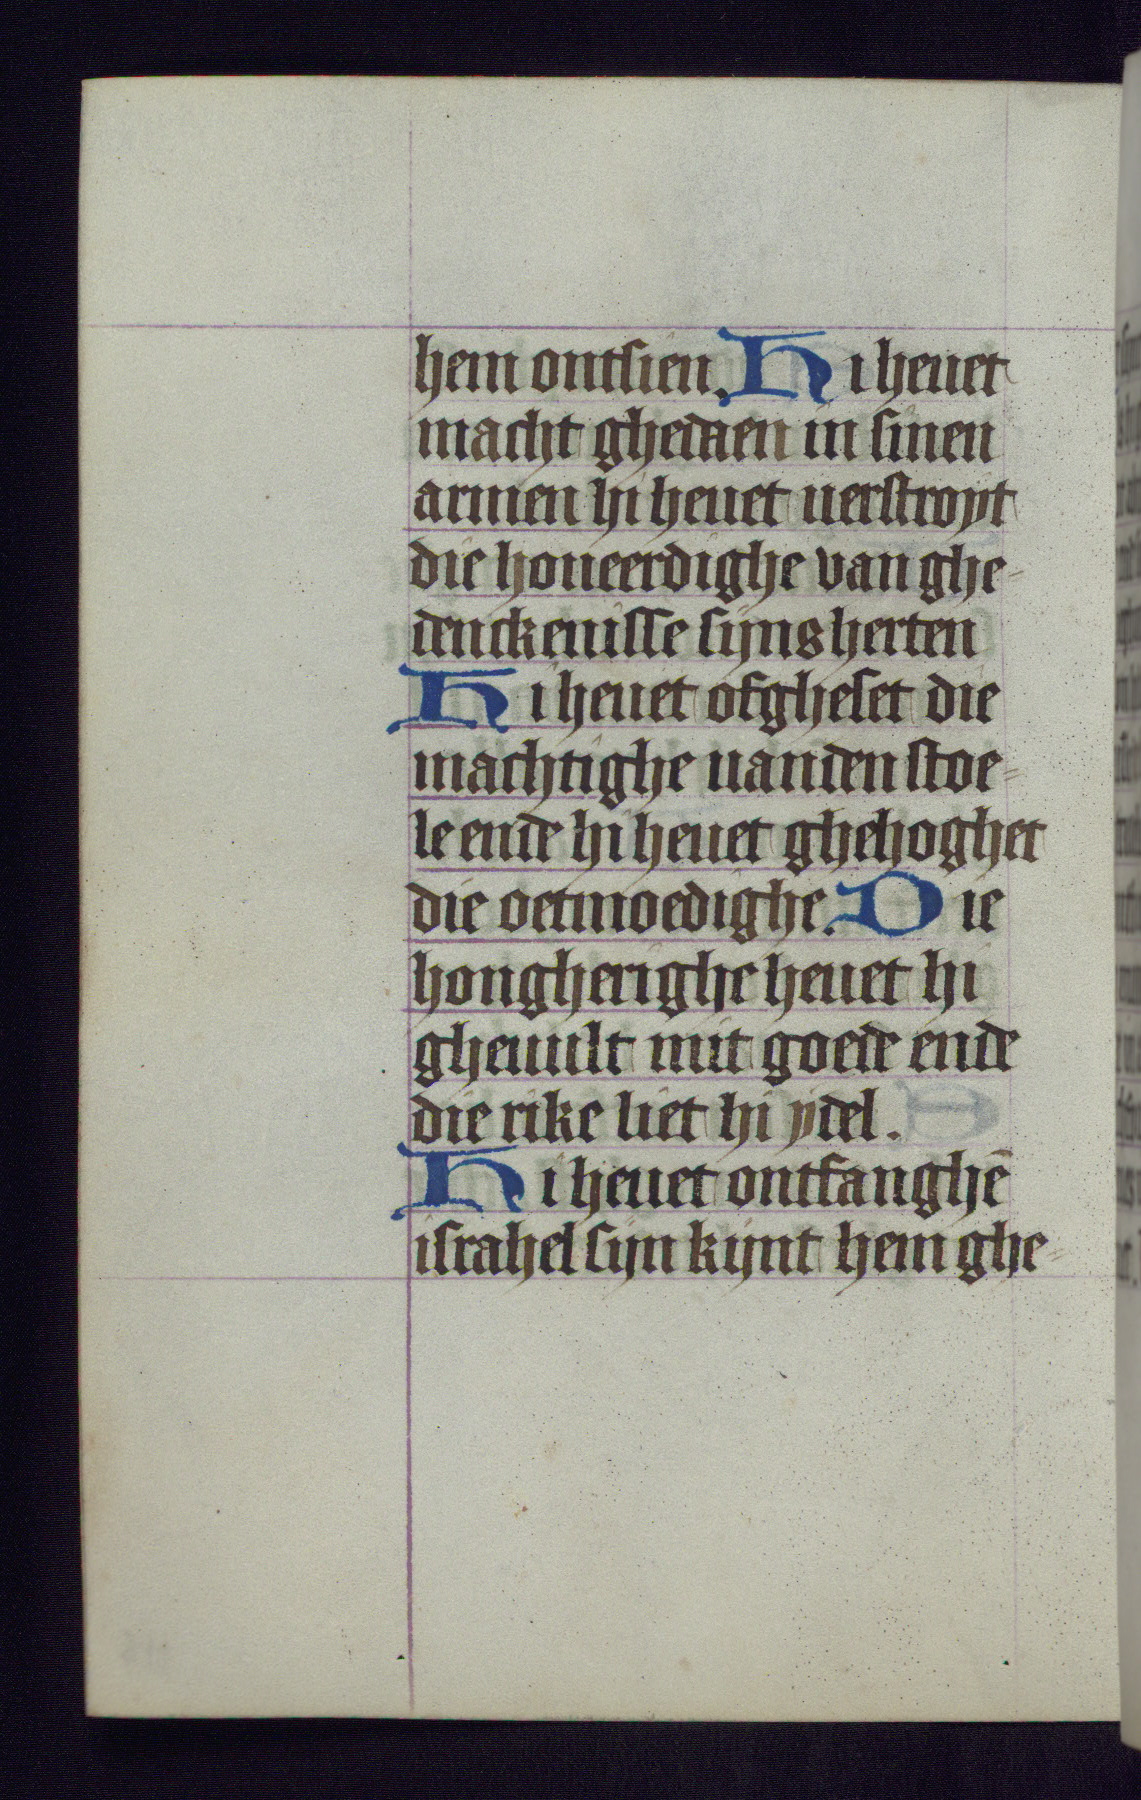 hem ontsien. Hi heuet
macht ghedaen in sinen
armen hi heuet uerstroyt
die houeerdighe van ghe-
denckenisse sijns herten
Hi heuet ofgheset die
machtighe uanden stoe-
le ende hi heuet ghehoghet
die oetmoedighe. Die
hongherighe heuet hi
gheuult mit goede ende
die rike liet hi ydel.
Hi heuet ontfanghē
israhel sijn kijnt hem ghe-